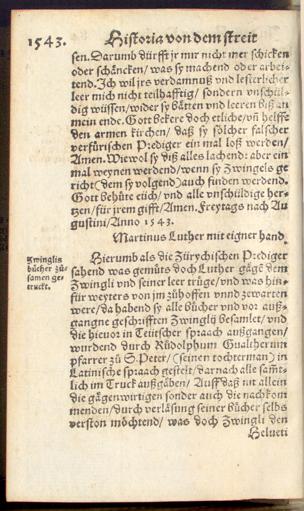 1543. Historia von dem streit
sen. Darumb dürfft jr mir nicht mer schicken
oder schäncken/ was sy machend oder arbei-
tend. Ich wil jrs verdamnuß vnd lesterlicher
leer mich nicht teilhafftig/ sondern vnschul-
dig wüssen/ wider sy bätten vnd leeren biß an
mein ende. Gott bekere doch etliche/ vñ helffe
den armen kirchen/ daß sy sölcher falscher
verfürischen Prediger ein mal loß werden/
Amen. Wiewol sy diß alles lachend: aber ein
mal weynen werdend/ wenn sy Zwingels ge
richt (dem sy volgend) auch finden werdend.
Gott behüte eüch/ vnd alle vnschuldige her-
tzen/ für jrem gifft/ Amen. Freytags nach Au
gustini/ Anno 1543.
Martinus Luther mit eigner hand.
Zwinglis
bücher zů-
samen ge-
truckt.
Hierumb als die Zürychischen Prediger
sahend was gemüts doch Luther gägē dem
Zwingli vnd seiner leer trüge/ vnd was hin-
für weyters von jm zůhoffen vnnd zewarten
were/ da habend sy alle bücher vnd vor auß-
gangne geschrifften Zwinglij besamlet/ vnd
die hieuor in Teütscher spraach außgangen/
wurdend durch Růdolphum Gualtherum
pfarrer zů S. Peter/ (seinen tochterman) in
Latinische spraach gestelt/ darnach alle samt-
lich im Truck außgäben/ Auff daß nit allein
die gägenwirtigen sonder auch die nachkom
menden/ durch verläsung seiner bücher selbs
verston möchtend/ was doch Zwingli den
Helueti